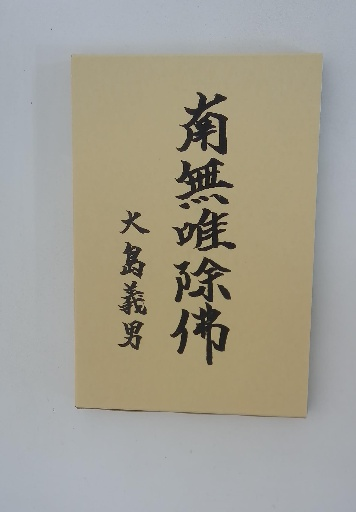 南無唯除佛
大島義男